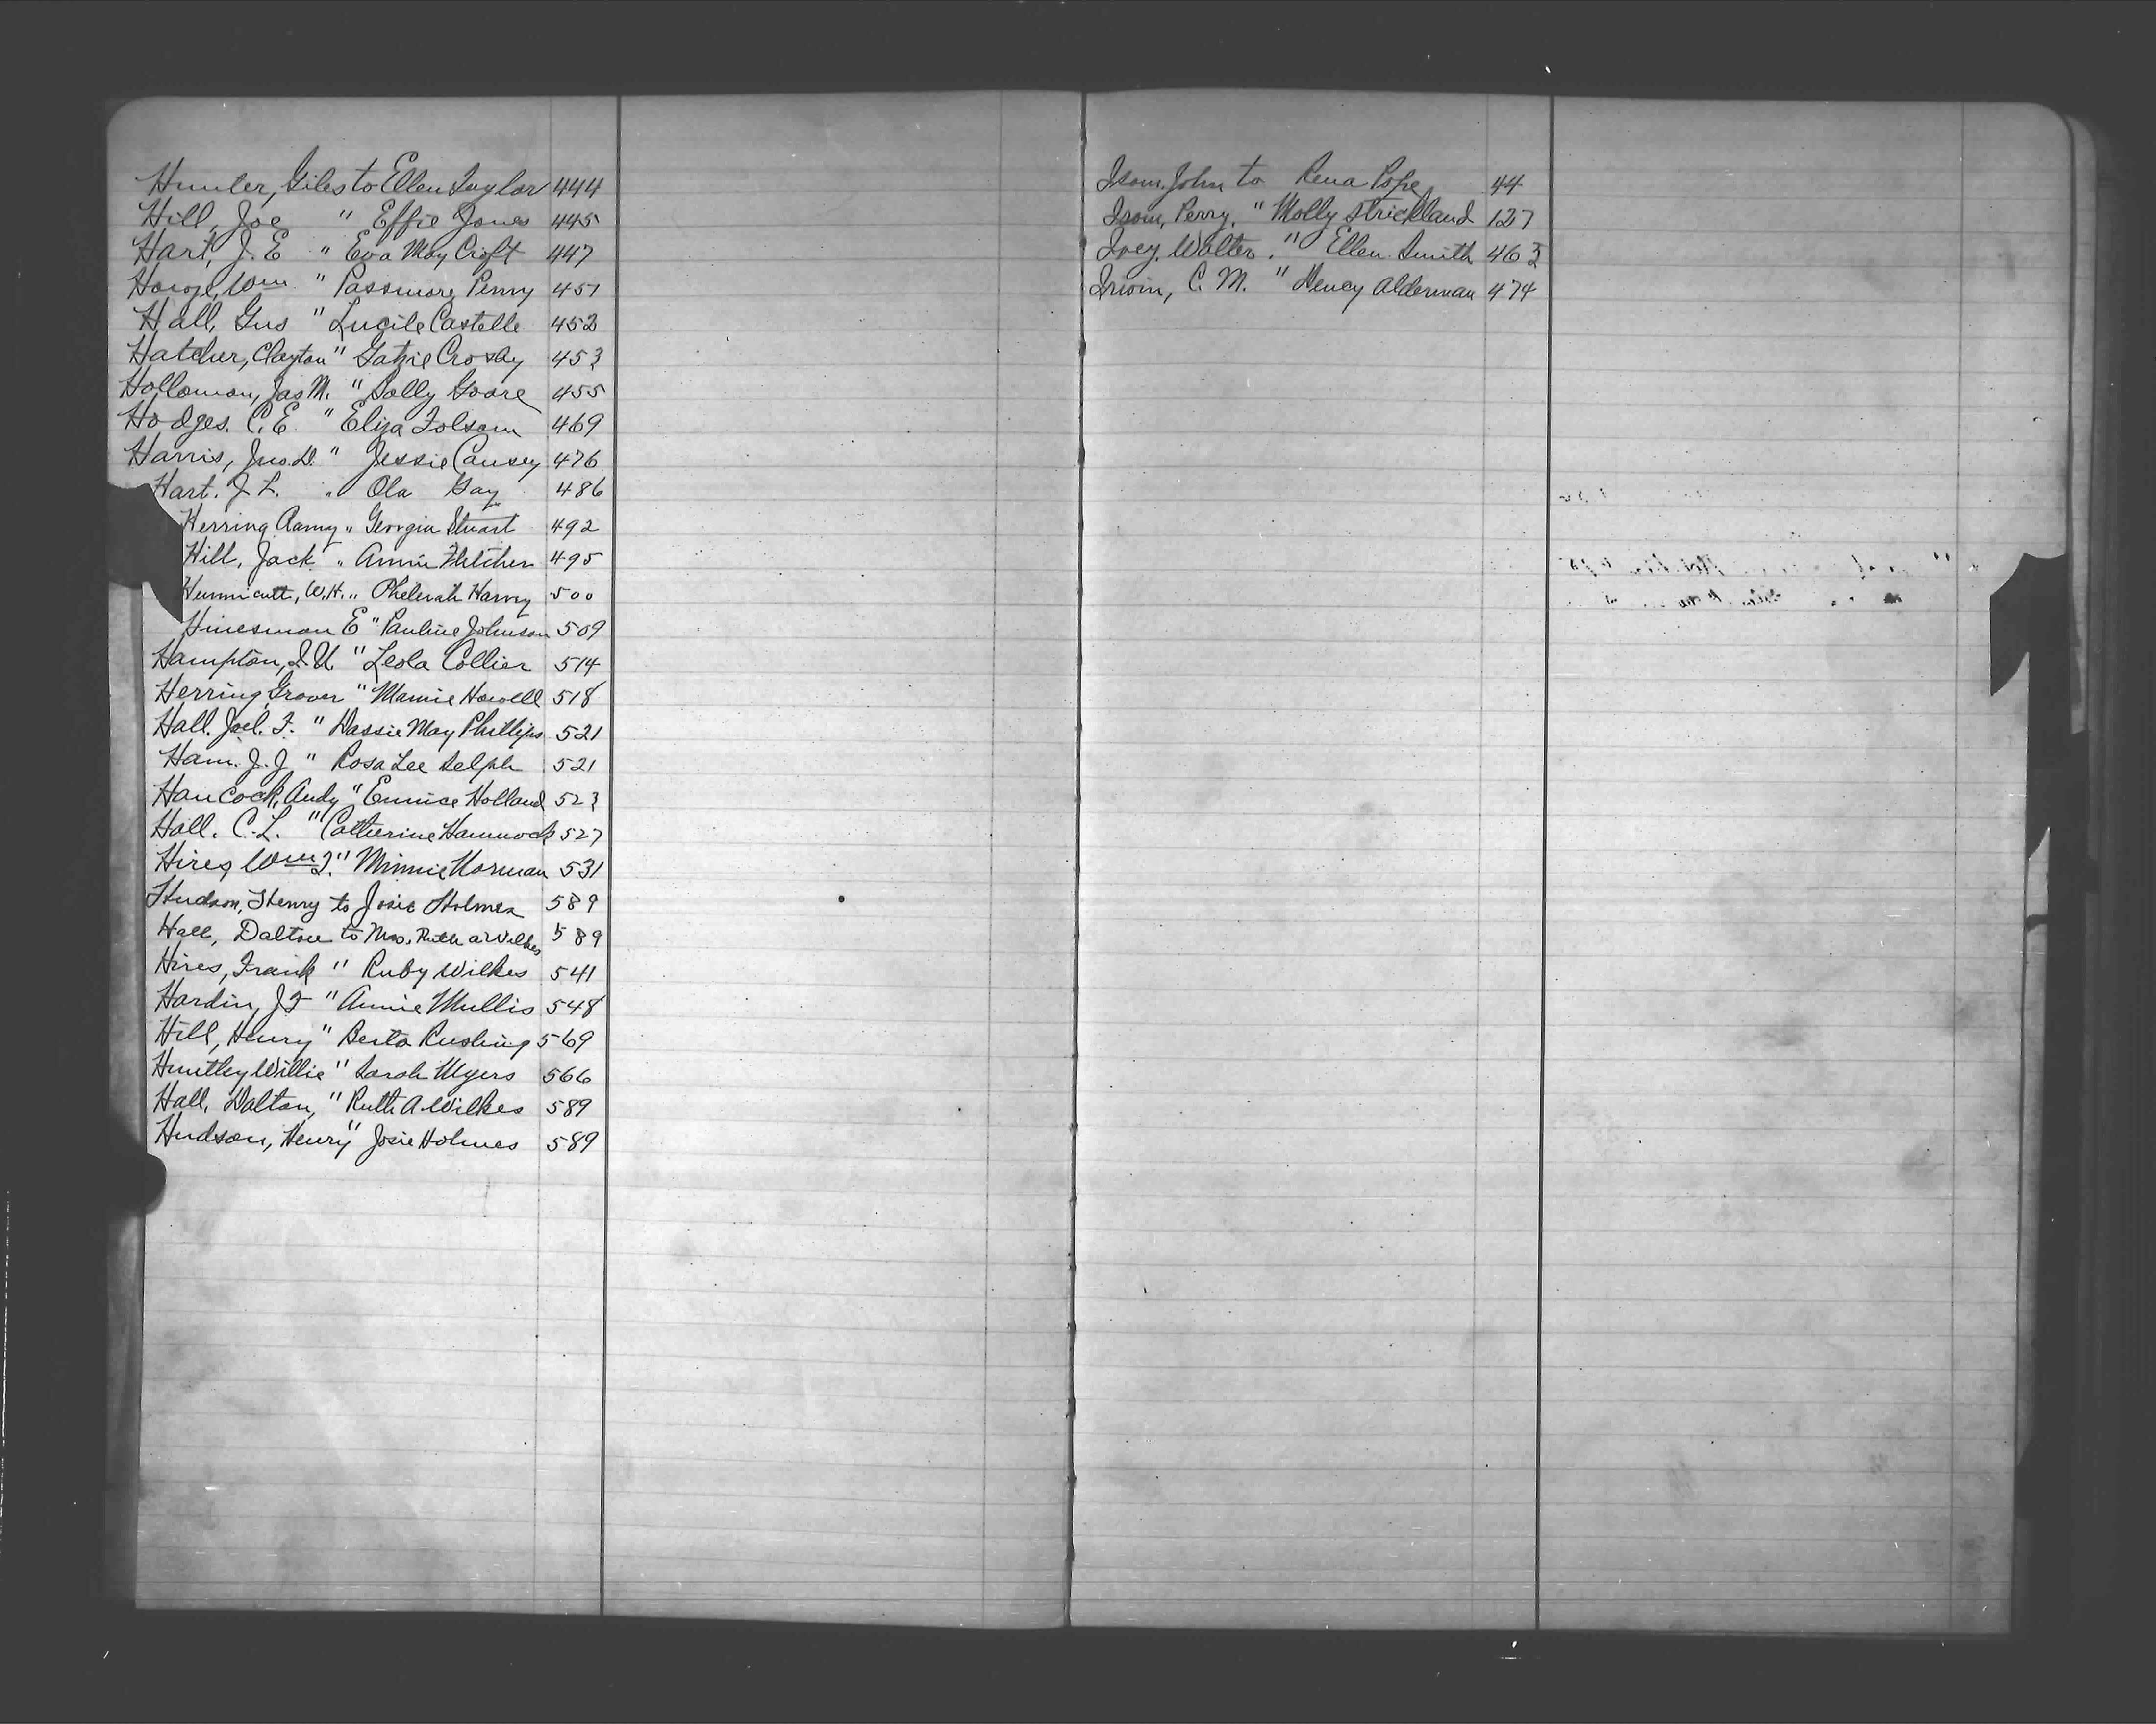 Hunter, Giles to Ellen Taylor 444
Hill, Joe " Effie Jones 445
Hart, J. E " Eva May Croft 447
Wm " Passmore, Penny 451
Hall, Gus " Lucile Castelle 452
Hatcher, Clayton " Crosby 453
Holloman, Jas M. " Sally Goare 455
Hodges. C. E. " Eliza Folsom 469
Harris, Jno. D. " Jessie Causey 476
Hart. J. L. " Ola Gay 486
Herring " Georgia Stuart 492
Hill, Jack " Annie Fletcher 495
Hunnicutt, W. H. " Harvey 500
Hinesman E " Pauline Johnson 509
Hampton, " Leola Collier 514
Herring, Grover " Mamie Howell 518
Hall. Joel. F. " Dassie May Phillips 521
Ham. J. J " Rosa Lee Selph 521
Hancock, Andy " Eunice Holland 523
Hall. C. L. " Catherine Hammock 527
Hires, Wm J. " Minnie Norman 531
Hudson, Henry to Josie Holmes 589
Hall, Dalton to Mrs. Ruth A Wilkes 589
Hires, Frank " Ruby Wilkes 541
Hardin, J F " Annie Mullis 548
Hill, Henry " Berta Rushing 569
Huntley Willie " Sarah Myers 566
Hall, Dalton, " Ruth A. Wilkes 589
Hudson, Henry " Josie Holmes 589
Isom, John to Rena Pope 44
Isom, Perry, " Molly Strickland 127
Ivey, Walter. " Ellen Smith 463
Irwin, C. M. " Alderman 474